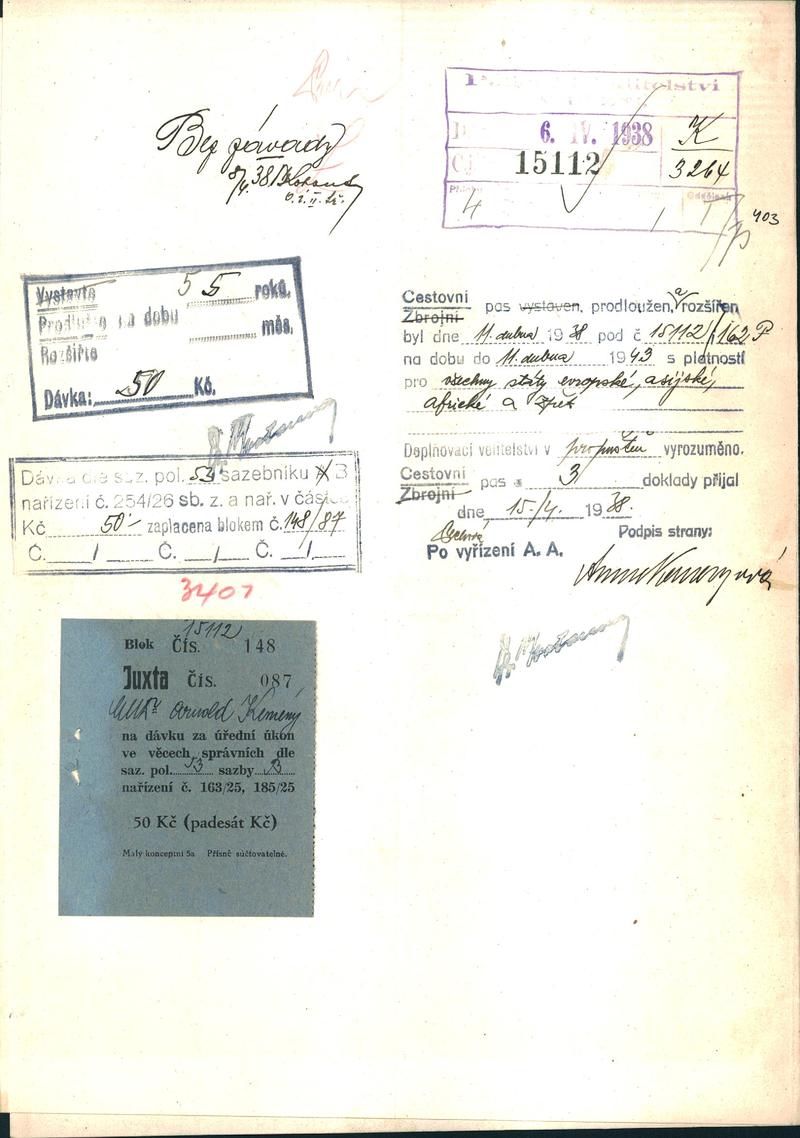 Bez závady
8/4 38
6. IV. 1938
K
15112
3264
4
1
403
Vystavte 5 5 roků,
Prodlužte na dobu měs.
Rozšiřte
Dávka: 50 Kč.
Cestovní
Zbrojní pas vystaven, prodloužen, a rozšířen
byl dne 11. dubna 1938 pod č 15112/162 P
na dobu do 11. dubna 1943 s platností
pro všechny státy evropské, asijské,
africké a
Doplňovací velitelství v vyrozuměno.
Cestovní
Zbrojní pas a 3 doklady přijal
dne 15./4. 1938.
Podpis strany:
Po vyřízení A. A.
Dávka dle saz. pol. 53 sazebníku B
nařízení č. 254/26 sb. z. a nař. v částce
Kč 50- zaplacena blokem č. 148/87
Č. / Č. / Č. /
3407
15112
Blok Čís. 148
Juxta Čís. 087
MUDr Arnold Kemény
na dávku za úřední úkon
ve věcech správních dle
saz. pol. 53 sazby B
nařízení č. 163/25, 185/25
50 Kč (padesát Kč)
Malý konceptní 5a Přísně súčtovatelné.